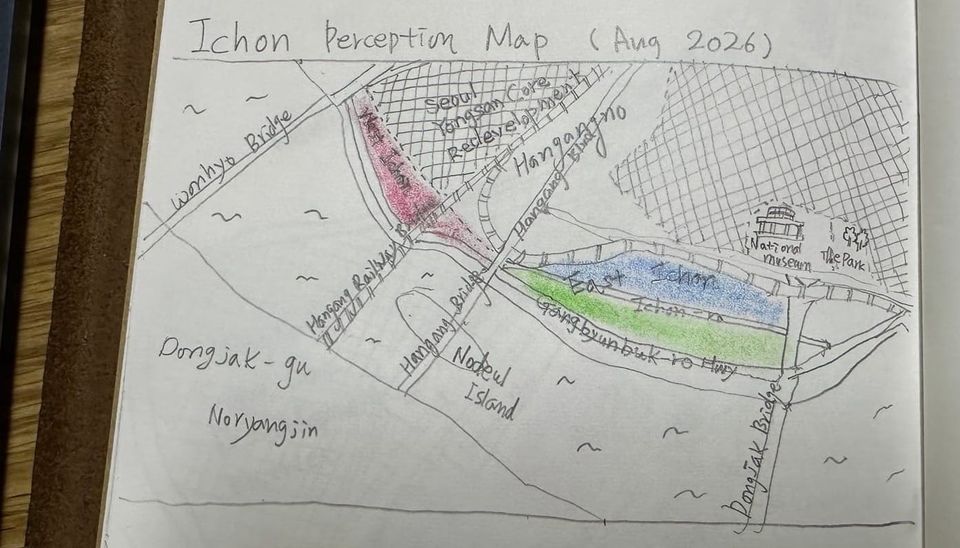 Ichon Perception Map (Aug 2026)
Wonhyo Bridge
West Ichon
Seoul
Yongsan Core
Redevelopment
Hangangno
Hangang Blvd
National
museum
The Park
East Ichon
Ichon-ro
Gangbyunbuk-ro Hwy
Hangang Railway Br
Hangang Bridge
Nodeul
Island
Dongjak-gu
Noryangjin
Dongjak Bridge